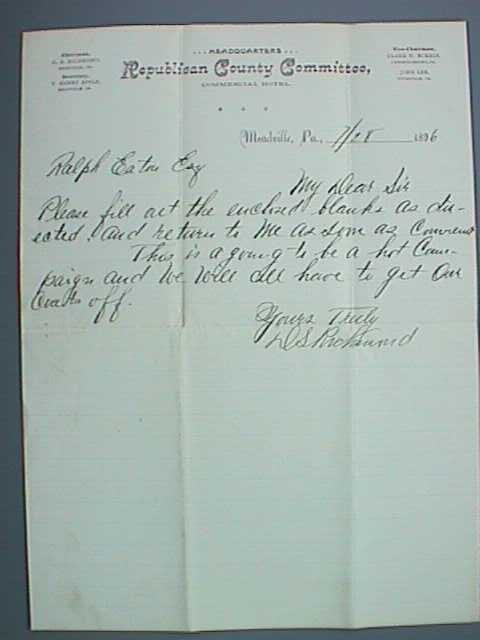 ...HEADQUARTERS...
Republican County Committee,
COMMERCIAL HOTEL.
Chairman,
MEADVILLE, PA.
Secretary,
MEADVILLE, PA.
Vice-Chairman,
Meadville, Pa., 7/28 1896
Ralph Eaton Esq
My Dear Sir
Please fill out the enclosed blanks as di-
ected. and return to Me as soon as Convenient
This is a going to be a hot Cam-
paign and We Will all have to get Our
Coats off.
Yours Truly